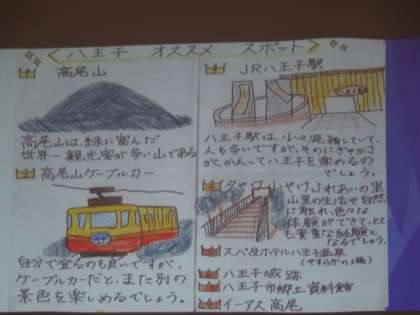 八王子 オススメ スポット
高尾山
高尾山は、緑に富んだ
世界一観光客が多い山である
高尾山ケーブルカー
自分で登るのも良いですが、
ケーブルカーだとまた別の
景色を楽しめるでしょう。
JR八王子駅
八王子駅は、少々混雑していて、
人も多いですが、そのにぎやかさ
がかえって八王子を楽しめるの
でしょう。
夕やけふれあいの里
山里の生活や自然
に触れ、色々な
体験ができて、と
ても貴重な経験と
なるでしょう。
スパ&ホテル八王子温泉
(やすらぎの湯)
八王子城跡
八王子市郷土資料館
イーアス高尾